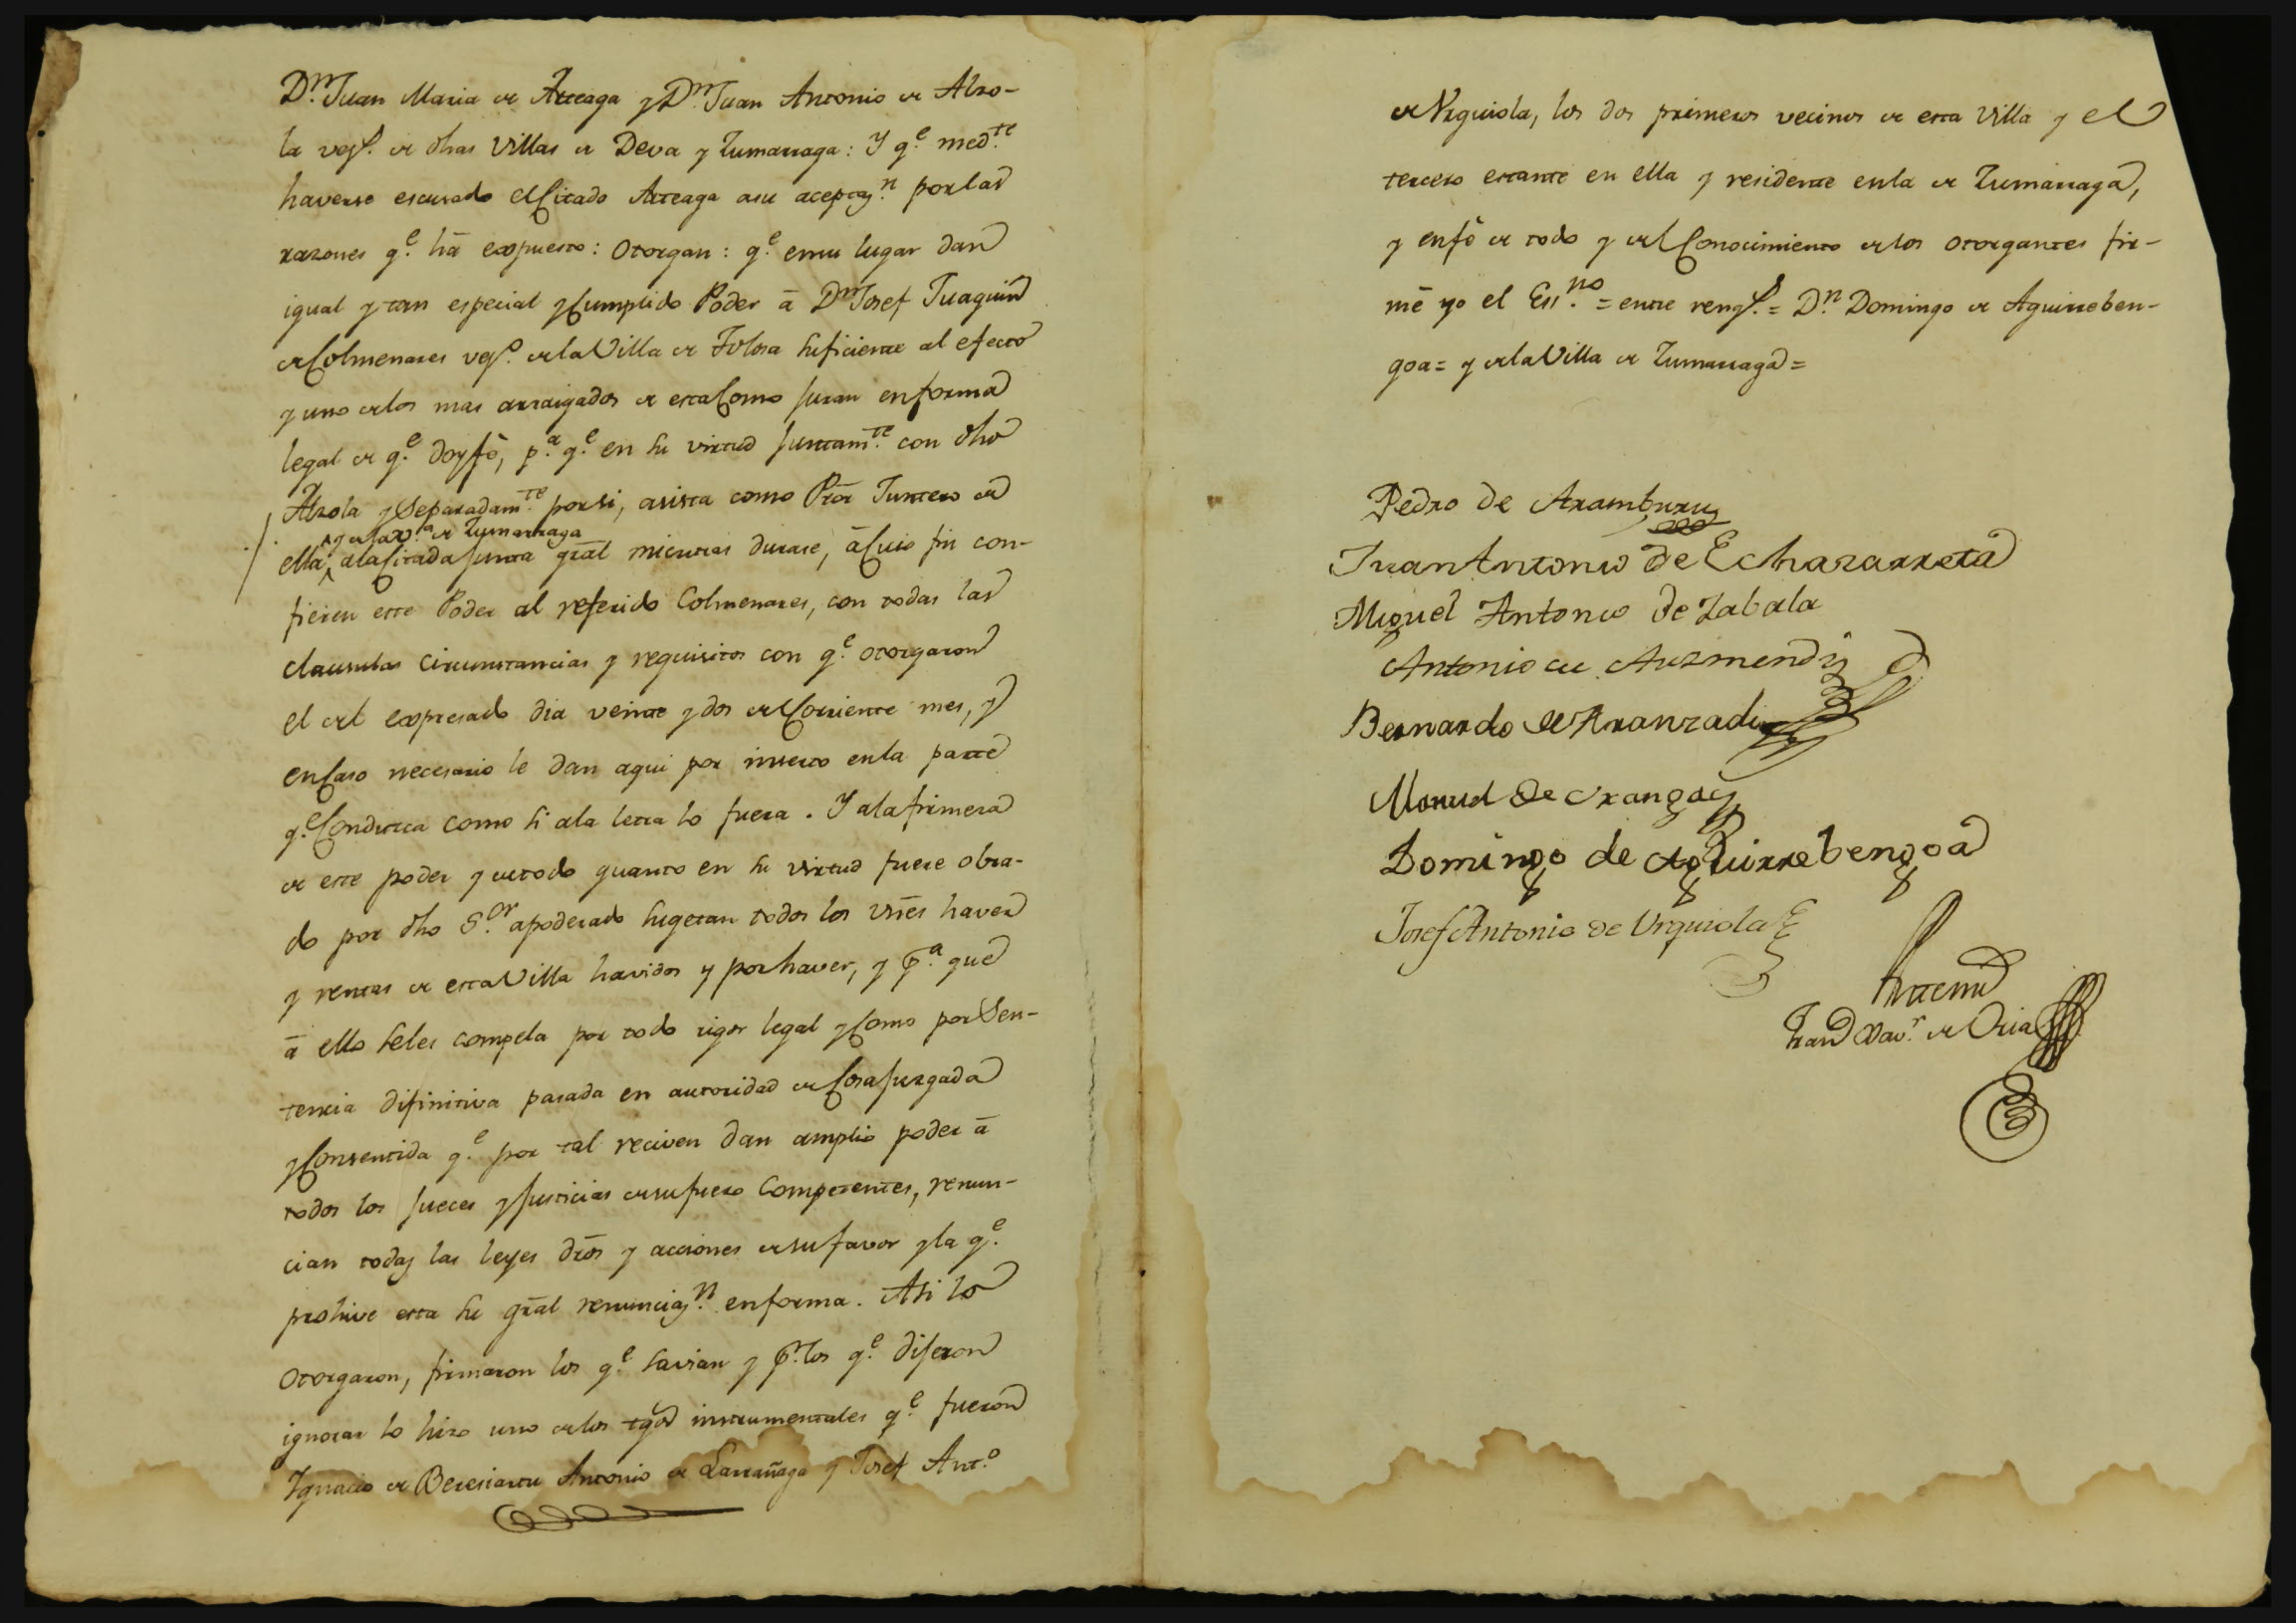 D.n Juan Maria de Arteaga y D.n Juan Antonio de Alzo-
la vez.s de dhas Villas de Deva y Zumarraga: Y q.e med.te
haverse escusado el Citado Arteaga asu aceptaz.n por las
razones q.e hā expuesto: Otorgan: q.e en su lugar dan
igual y tan especial y Cumplido Poder ā D.n Josef Juaquin
de Colmenares vez.o de la Villa de Tolosa suficiente al efecto
y uno de los mas arraigados de esta Como juran en forma
legal de q.e doy fē, p.a q.e en su virtud juntam.te con dho
Alzola y Separadam.te por si, asista como Prōr Juntero de
y de la V.a de Zumarraga
ella, ala Citada junta grāl mientras durare, ā Cuio fin con-
fieren este Poder al referido Colmenares, con todas las
clausulas Circunstancias y requisitos con q.e otorgaron
el del expresado dia veinte y dos del Corriente mes, y
en Caso necesario le dan aqui por inserto en la parte
q.e Conduzca como si ala letra lo fuera. Y ala firmeza
de este poder y de todo quanto en su virtud fuere obra-
do por dho S.or apoderado sugetan todos los vnēs haver
y rentas de esta Villa havidos y por haver, y p.a que
ā ello seles compela por todo rigor legal y Como por Sen-
tencia difinitiva pasada en autoridad de Cosa juzgada
y Consentida q.e por tal reciven dan amplio poder ā
todos los jueces y justicias de su fuero Competentes, renun-
cian todas las leyes drōs y acciones de su favor y la q.e
prohive esta su grāl renunciaz.n en forma. Asi lo
Otorgaron, firmaron los q.e savian y p.r los q.e dijeron
ignorar lo hizo uno de los tgos instrumentales q.e fueron
Ygnacio de Bereciartu Antonio de Larrañaga y Josef Ant.o
de Vrquiola, los dos primeros vecinos de esta Villa y el
tercero estante en ella y residente en la de Zumarraga,
y en fē de todo y del Conocimiento de los otorgantes fir-
mē yo el Ess.no = entre reng.s = D.n Domingo de Aguirreben-
goa = y de la Villa de Zumarraga =
Pedro de Aramburu
Juan Antonio de Echazarreta
Miguel Antonio de Zabala
Antonio de Auzmendi
Bernardo de Aranzadi
Manuel de Oranga
Domingo de Aguirrebengoa
Josef Antonio de Urquiola
Ante mi
Fran.co Xav.r de Oria